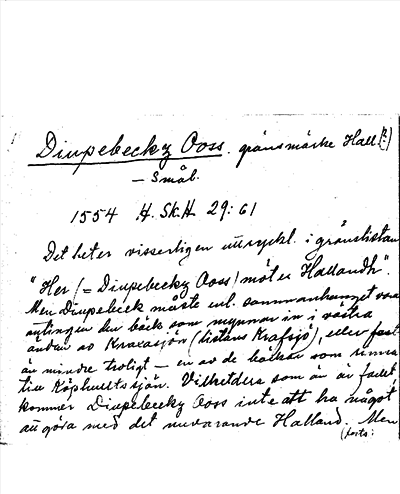 Diupebeckz Ooss. gränsmärke Hall. (?)
– Smål.
1554 H. Sk. H. 29: 61
Det heter visserligen uttryckl. i gränslistan
"Her (= Diupebeckz Ooss) möter Hallandh".
Men Diupebeck måste enl. sammanhanget vara
antingen den bäck som mynnar in i västra
ändan av Kravasjön (listans Krafsjö), eller fast
än mindre troligt – en av de bäckar som rinna
till Köphultssjön. Vilketdera som än är fallet,
kommer Diupebeckz Ooss inte att ha något
att göra med det nuvarande Halland. Men
(forts: